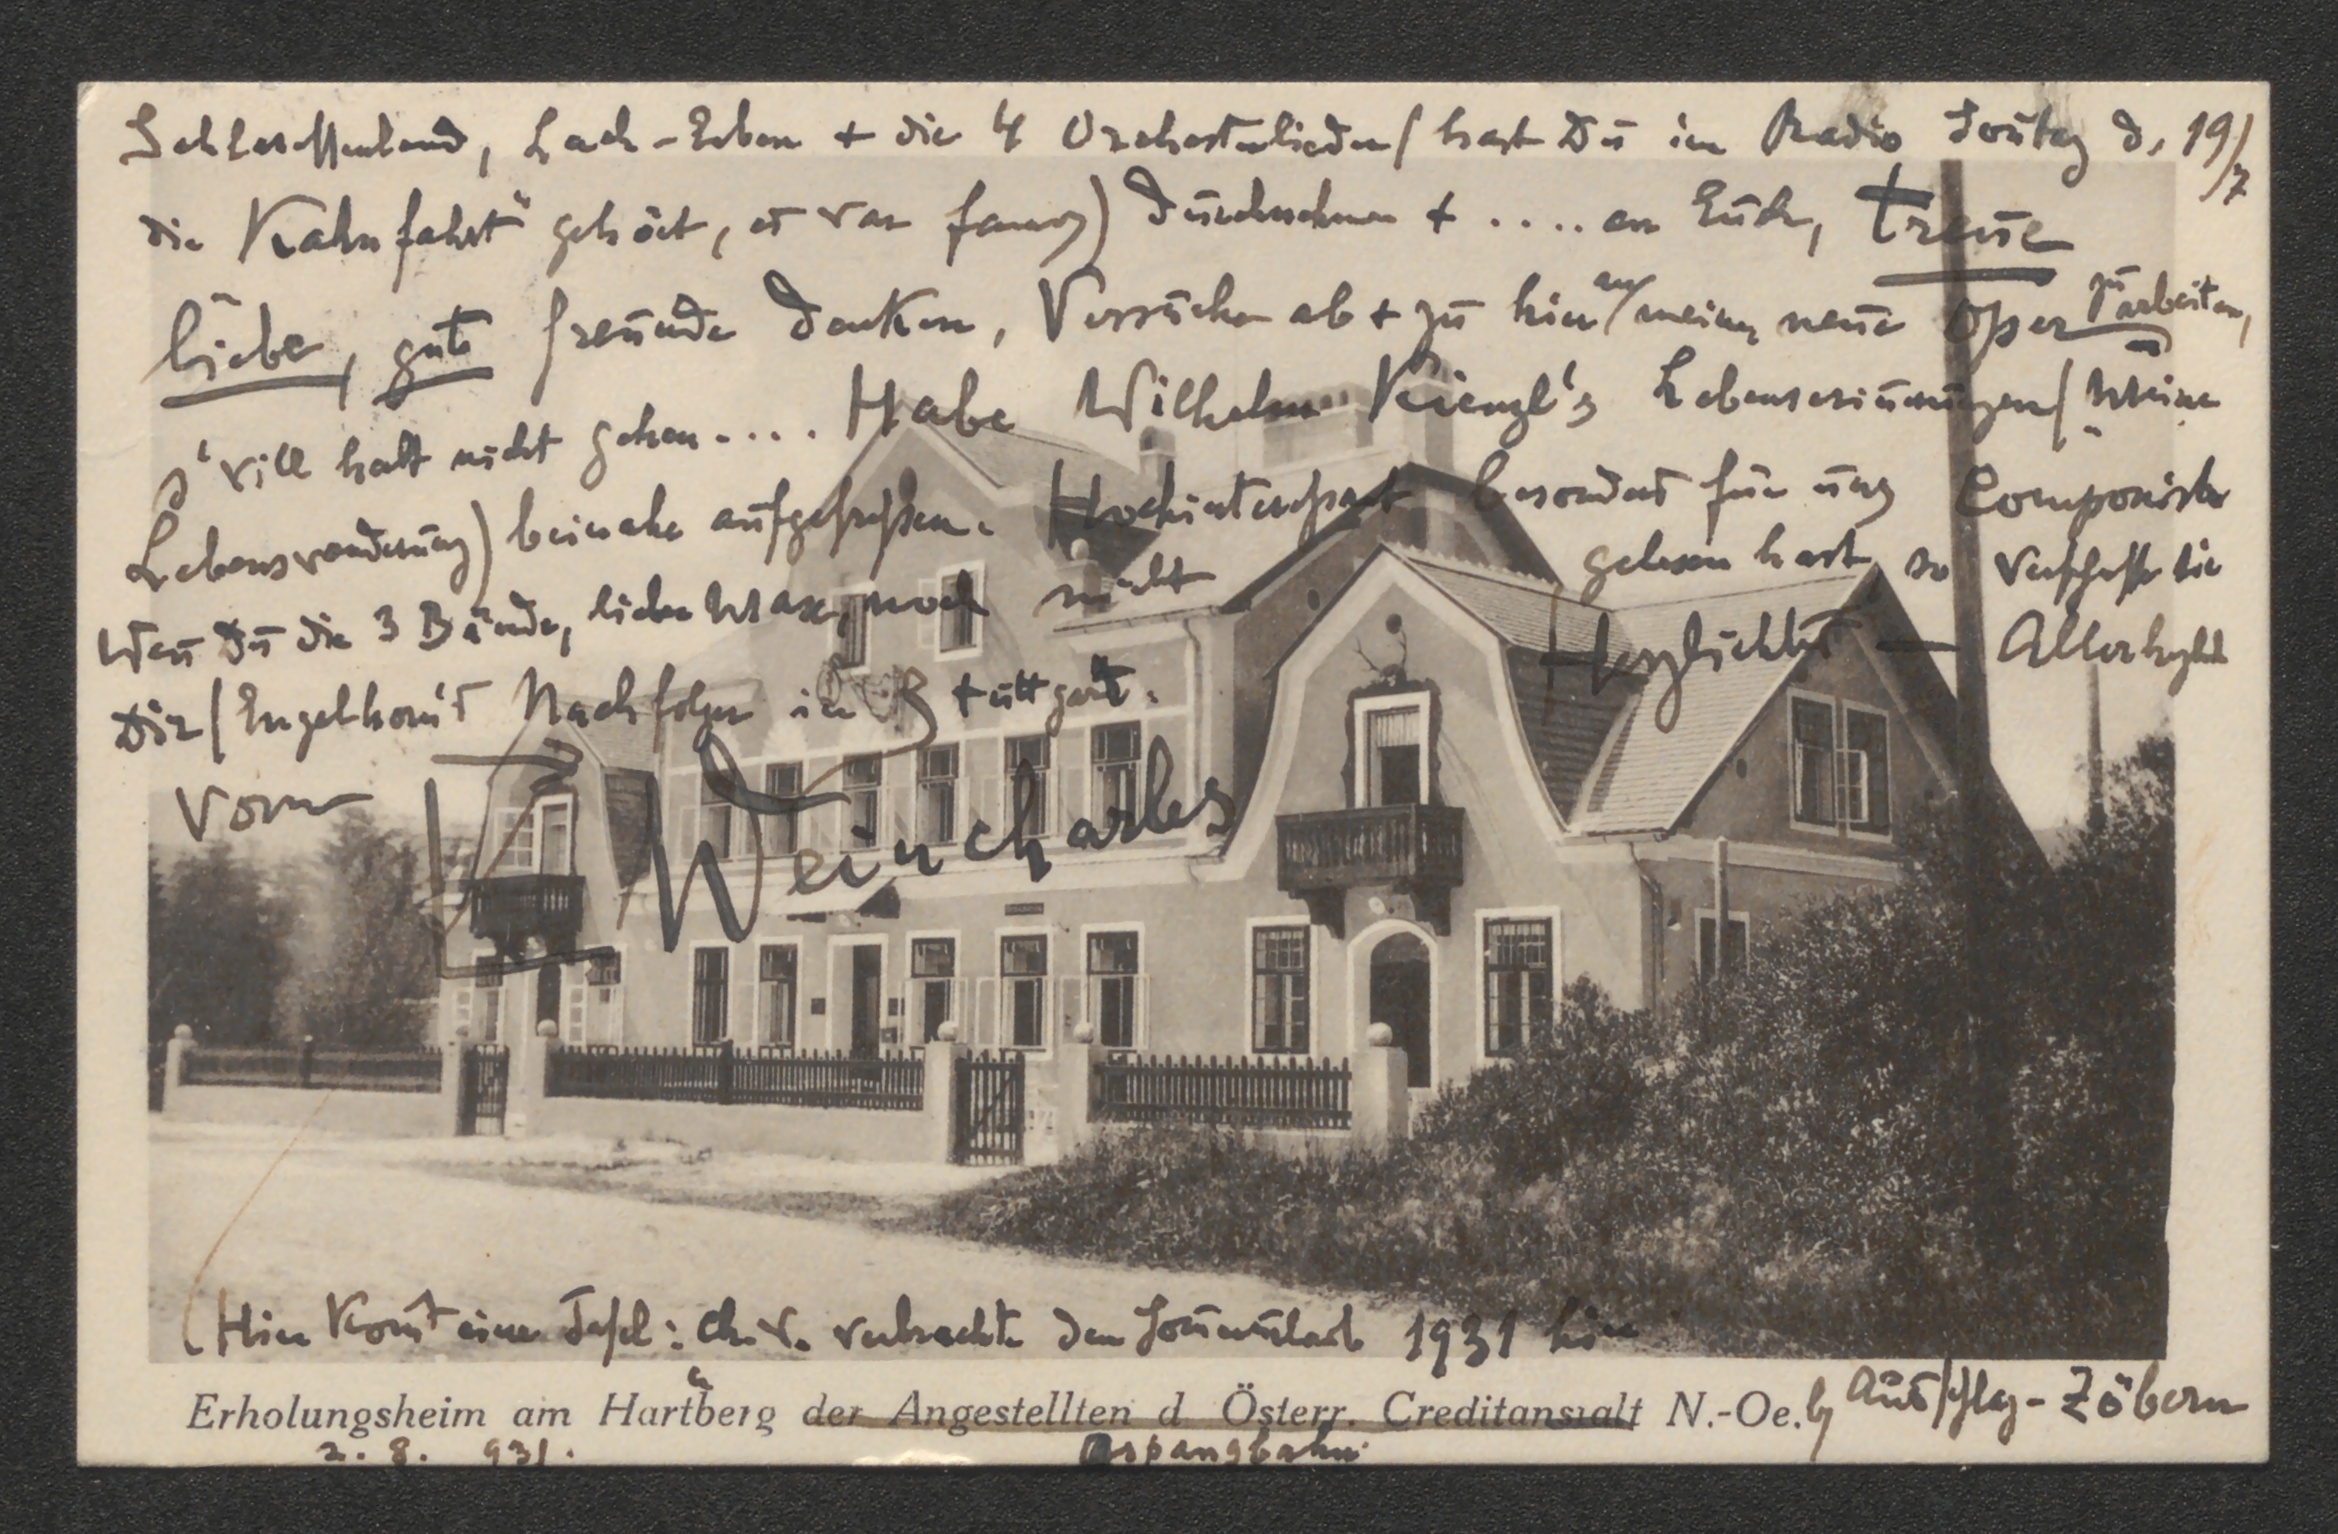 Schlaraffenland, Lach-Erben + die 4 Orchesterlieder / hast Du im Radio Soñtag d. 19/7
die "Kahnfahrt" gehört, es war famos) durchsehen + .... an Euch, treue
liebe, gute Freunde denken, Versuche ab + zu hier an meiner neuen Oper zu arbeiten,
s' will halt nicht gehen .... Habe Wilhelm Kienzl's Lebenserinnerungen / "Meine
Lebenswanderung) beinahe aufgefressen. Hochinteressant besonders für uns Componisten
Weñ Du die 3 Bände, lieber Max, noch nicht gelesen hast so verschaffe sie
Dir / Engelhorn's Nachfolger in Stuttgart. Herzlichst — Allerherzlichst
Vom
Weincharles
(Hier kom̃t eine Tafel: Ch. W. verbrachte den Som̃erurlaub 1931 hier
Erholungsheim am Hartberg der Angestellten d Österr. Creditanstalt N.-Oe.
Aus/schlag-Zöbern
2. 8. 931. Aspangbahn